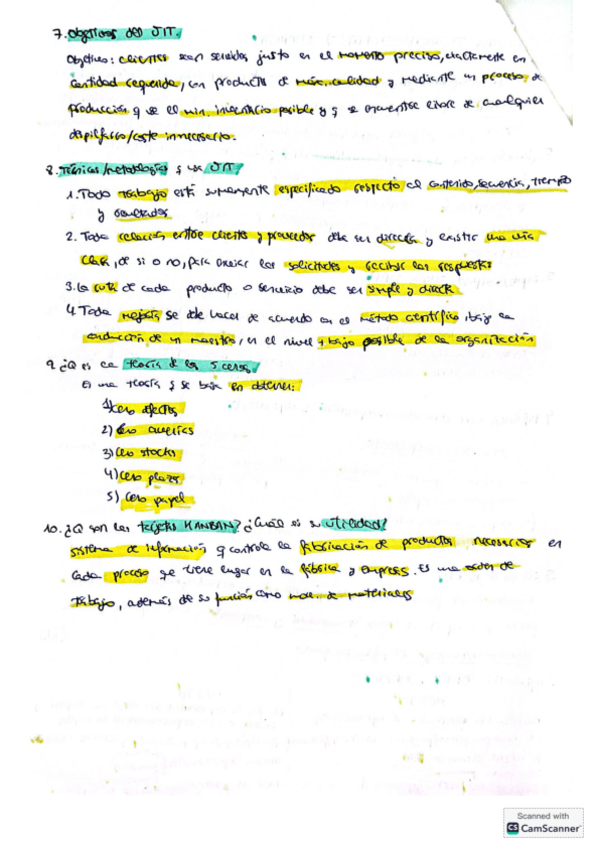 7. Objetivos del JIT.
Objetivo: clientes sean servidos justo en el momento preciso, exactamente en
cantidad requerida, con productos de máx. calidad y mediante un proceso de
producción q use el min. inventario posible y q se encuentre libre de cualquier
despilfarro/coste innecesario.
8. Técnicas/metodologías q usa JIT
1. Todo trabajo está sumamente especificado respecto al contenido, secuencia, tiempo
y resultados
2. Toda relación entre cliente y proveedor debe ser directa y existir una vía
clara, de si o no, para enviar las solicitudes y recibir las respuestas
3. La ruta de cada producto o servicio debe ser simple y directa
4. Toda mejora se debe hacer de acuerdo con el método científico, bajo la
conducción de un maestro, en el nivel + bajo posible de la organización
9. ¿Q es la teoría de los 5 ceros?
Es una teoría q se basa en obtener:
1) Cero defectos
2) Cero averías
3) Cero stocks
4) Cero plazos
5) Cero papel
10. ¿Q son las tarjetas KANBAN? ¿Cuál es su utilidad?
sistema de información q controla la fabricación de productos necesarios en
cada proceso que tiene lugar en la fábrica y empresas. Es una orden de
trabajo, además de su función como mov. de materiales
Scanned with
CS CamScanner